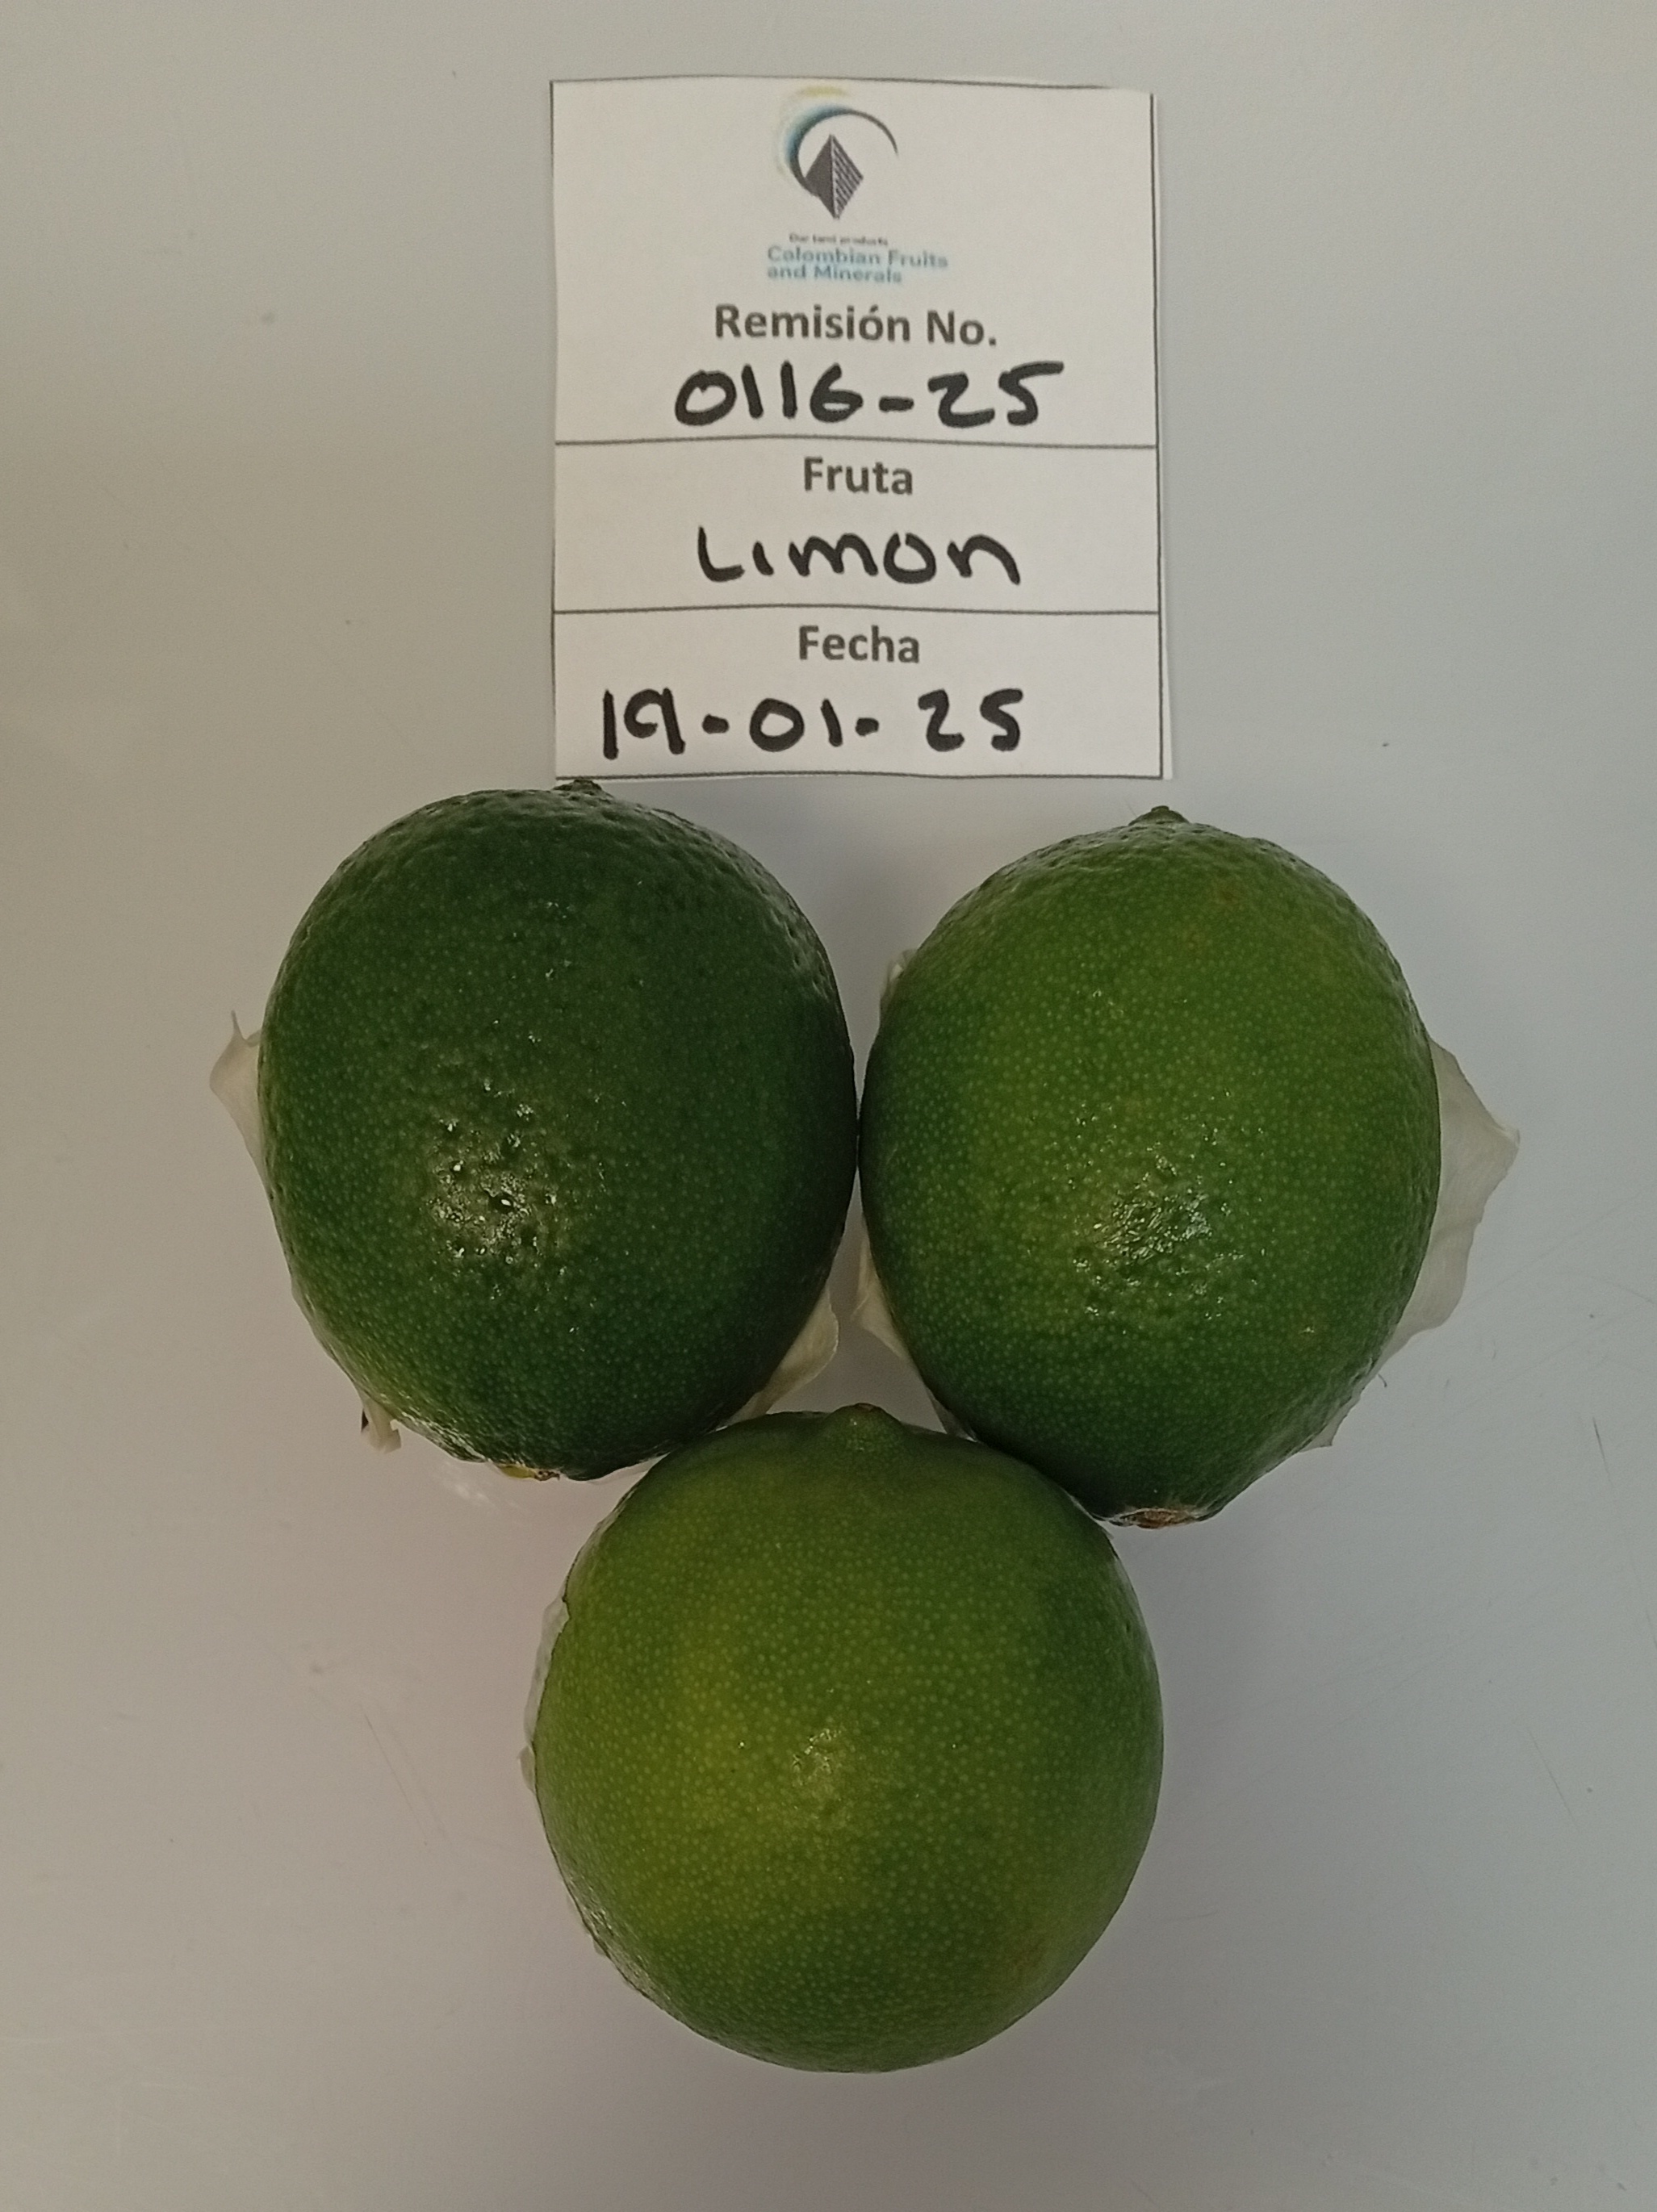 Our land products
Colombian Fruits
and Minerals
Remisión No.
0116-25
Fruta
Limon
Fecha
19-01-25